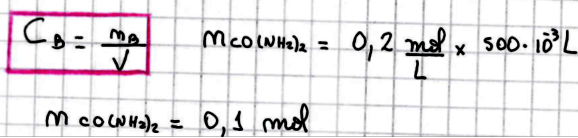 C_B = n_B / V    n_CO(NH₂)₂ = 0,2 mol/L × 500·10⁻³ L
n_CO(NH₂)₂ = 0,1 mol